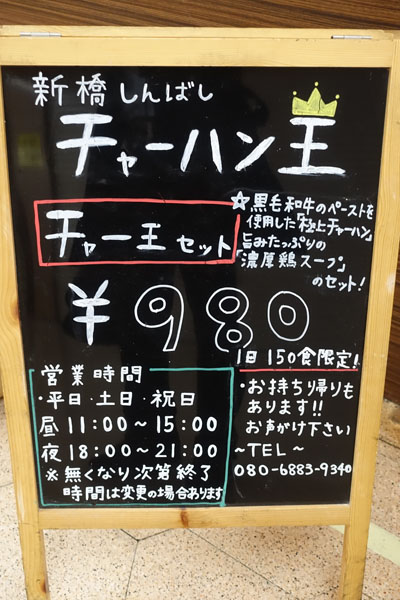 新橋 しんばし
チャーハン王
チャー王 セット
☆黒毛和牛のペーストを
使用した「極上チャーハン」
旨みたっぷりの
「濃厚鶏スープ」
のセット!
¥980
1日150食限定!
営業時間
・平日・土日・祝日
昼 11:00〜15:00
夜 18:00〜21:00
※無くなり次第終了
時間は変更の場合あります
・お持ち帰りも
あります!!
お声がけ下さい
〜TEL〜
080-6883-9340